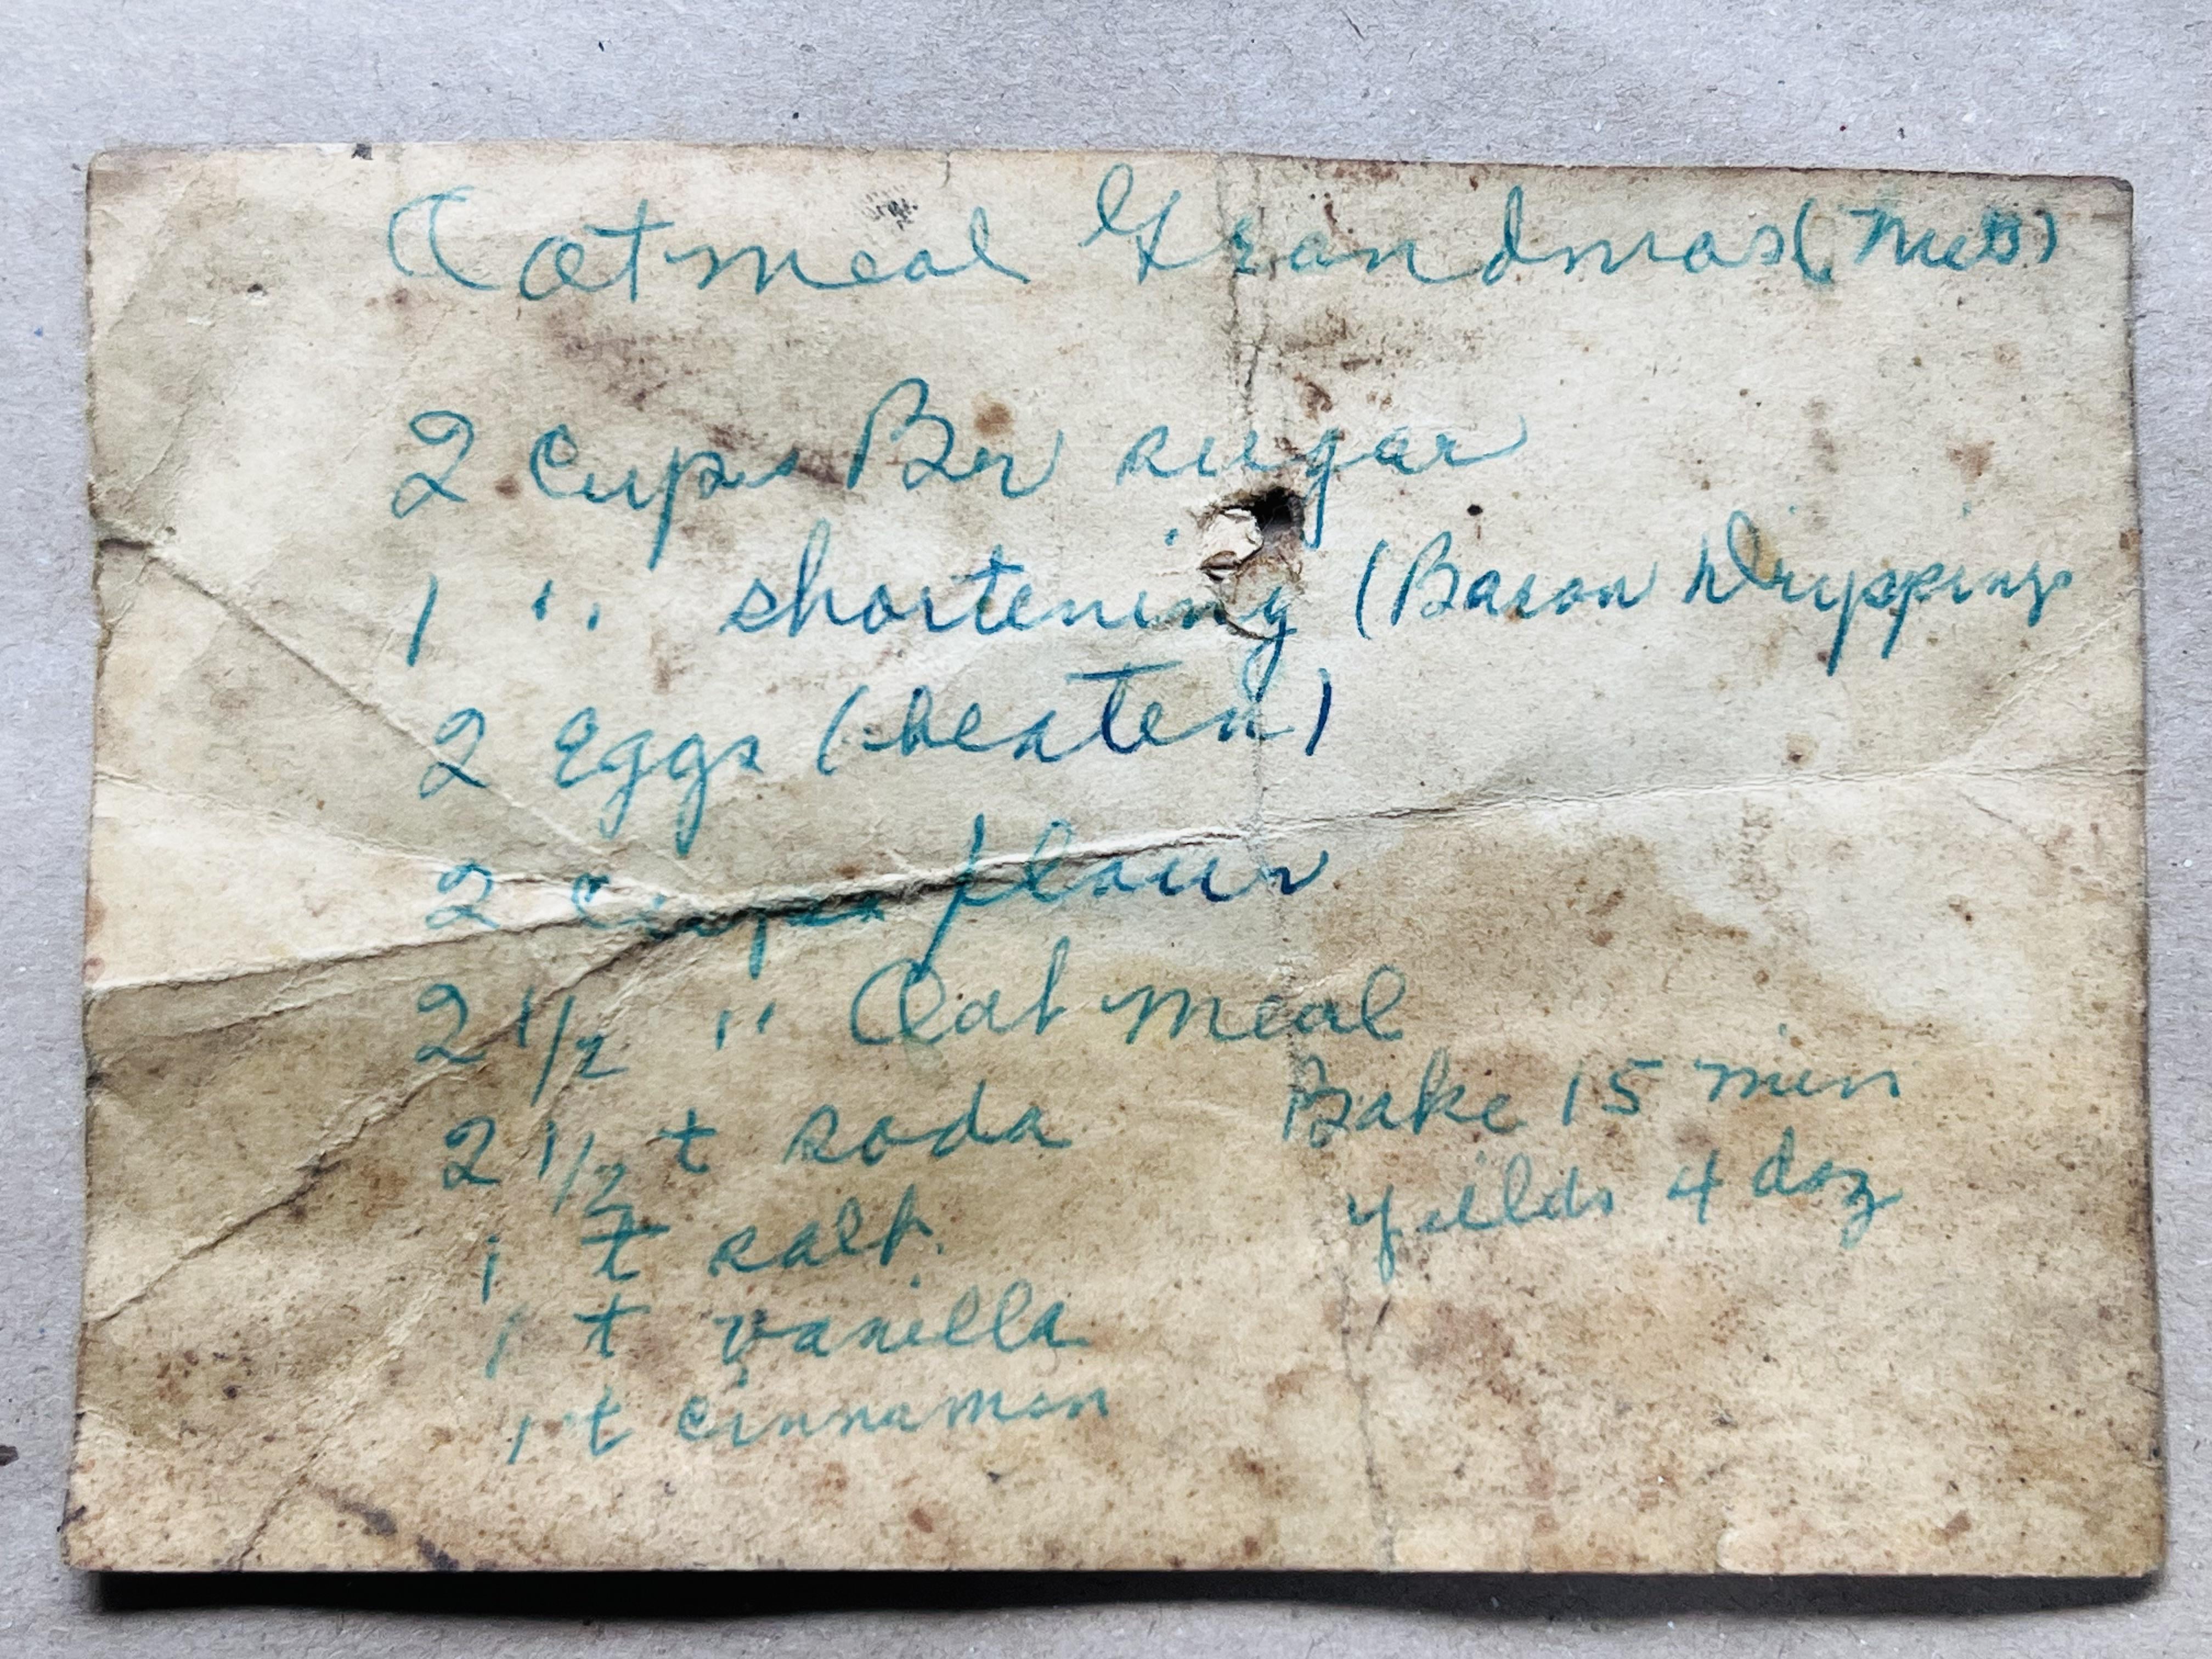 Oatmeal Grandmas (Nuts)
2 Cups Br sugar
1 " shortening (Bacon Drippings
2 Eggs (beaten)
2 Cups flour
2 1/2 " Oatmeal
2 1/2 t soda
Bake 15 min
1 t salt
yeilds 4 doz
1 t vanilla
1 t cinnamon